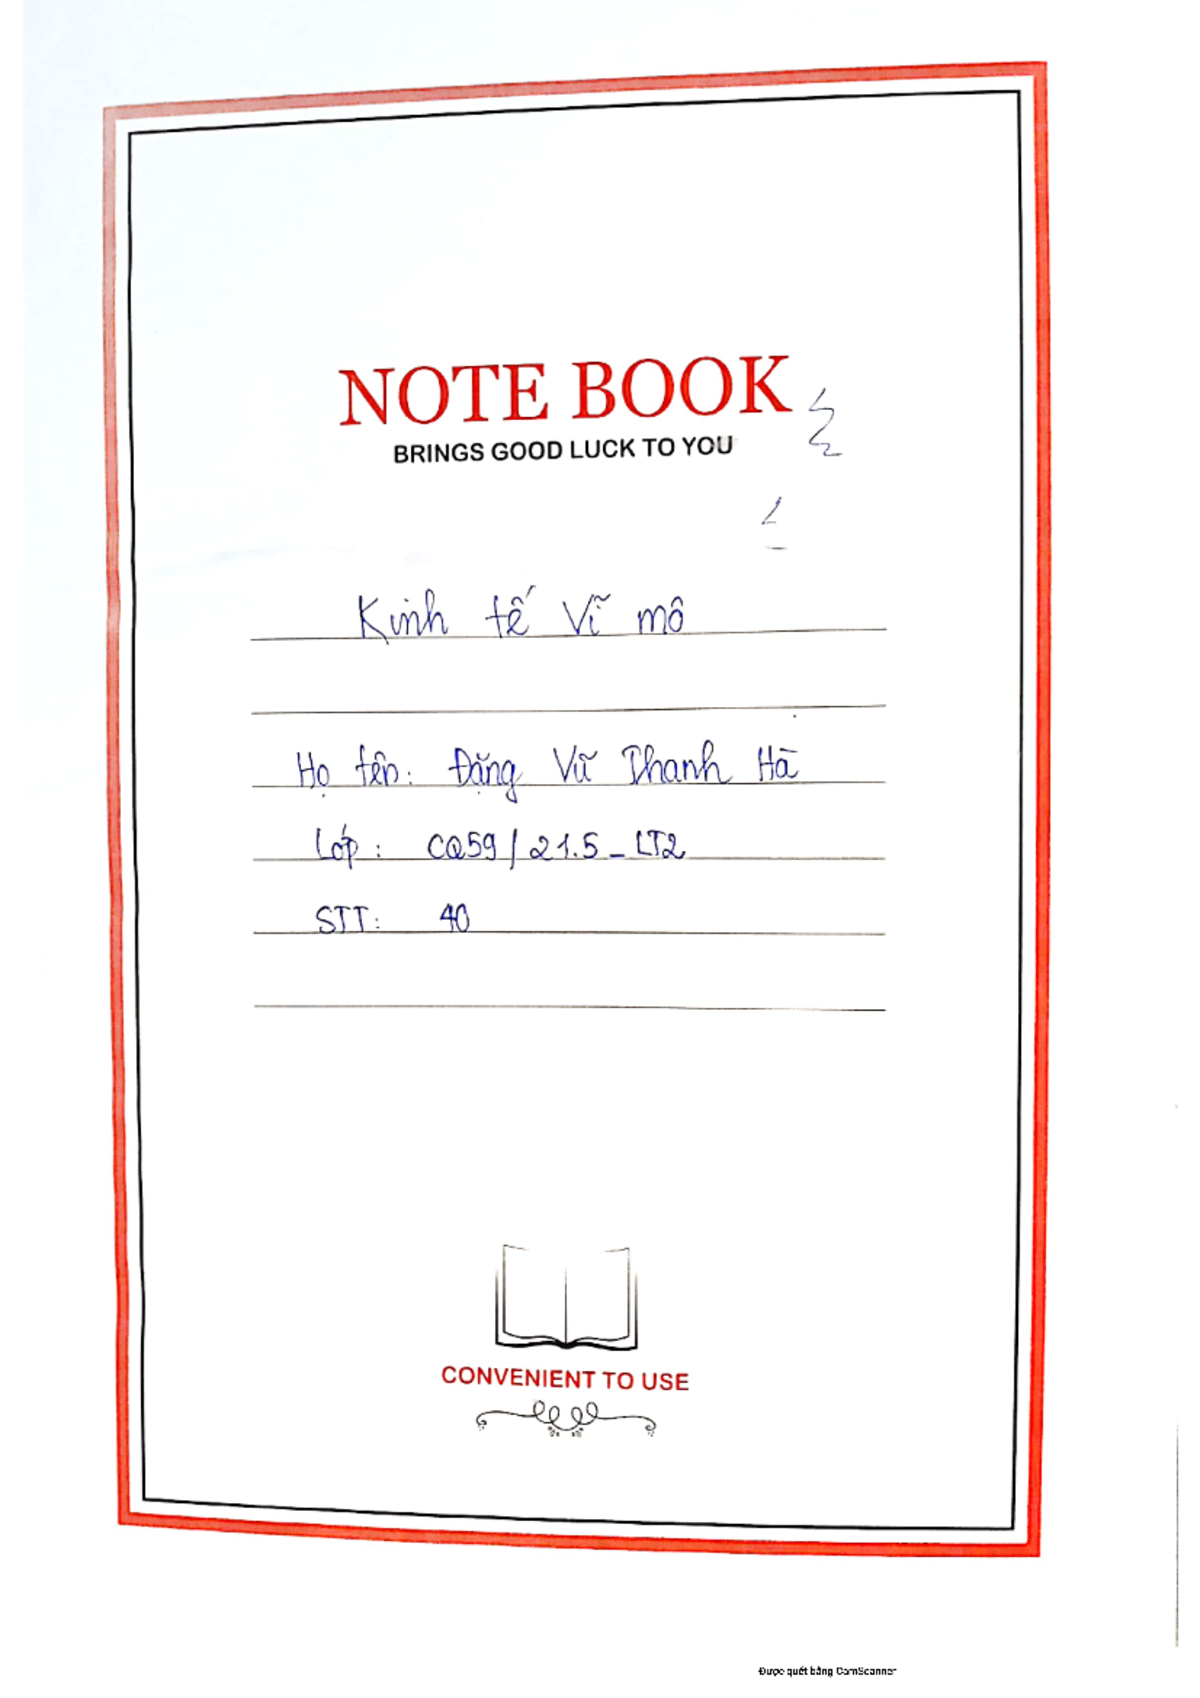 NOTE BOOK
BRINGS GOOD LUCK TO YOU
Kinh tế Vĩ mô
Họ tên: Đặng Vũ Thanh Hà
Lớp: CQ59/21.5_LT2
STT: 40
CONVENIENT TO USE
Được quét bằng CamScanner